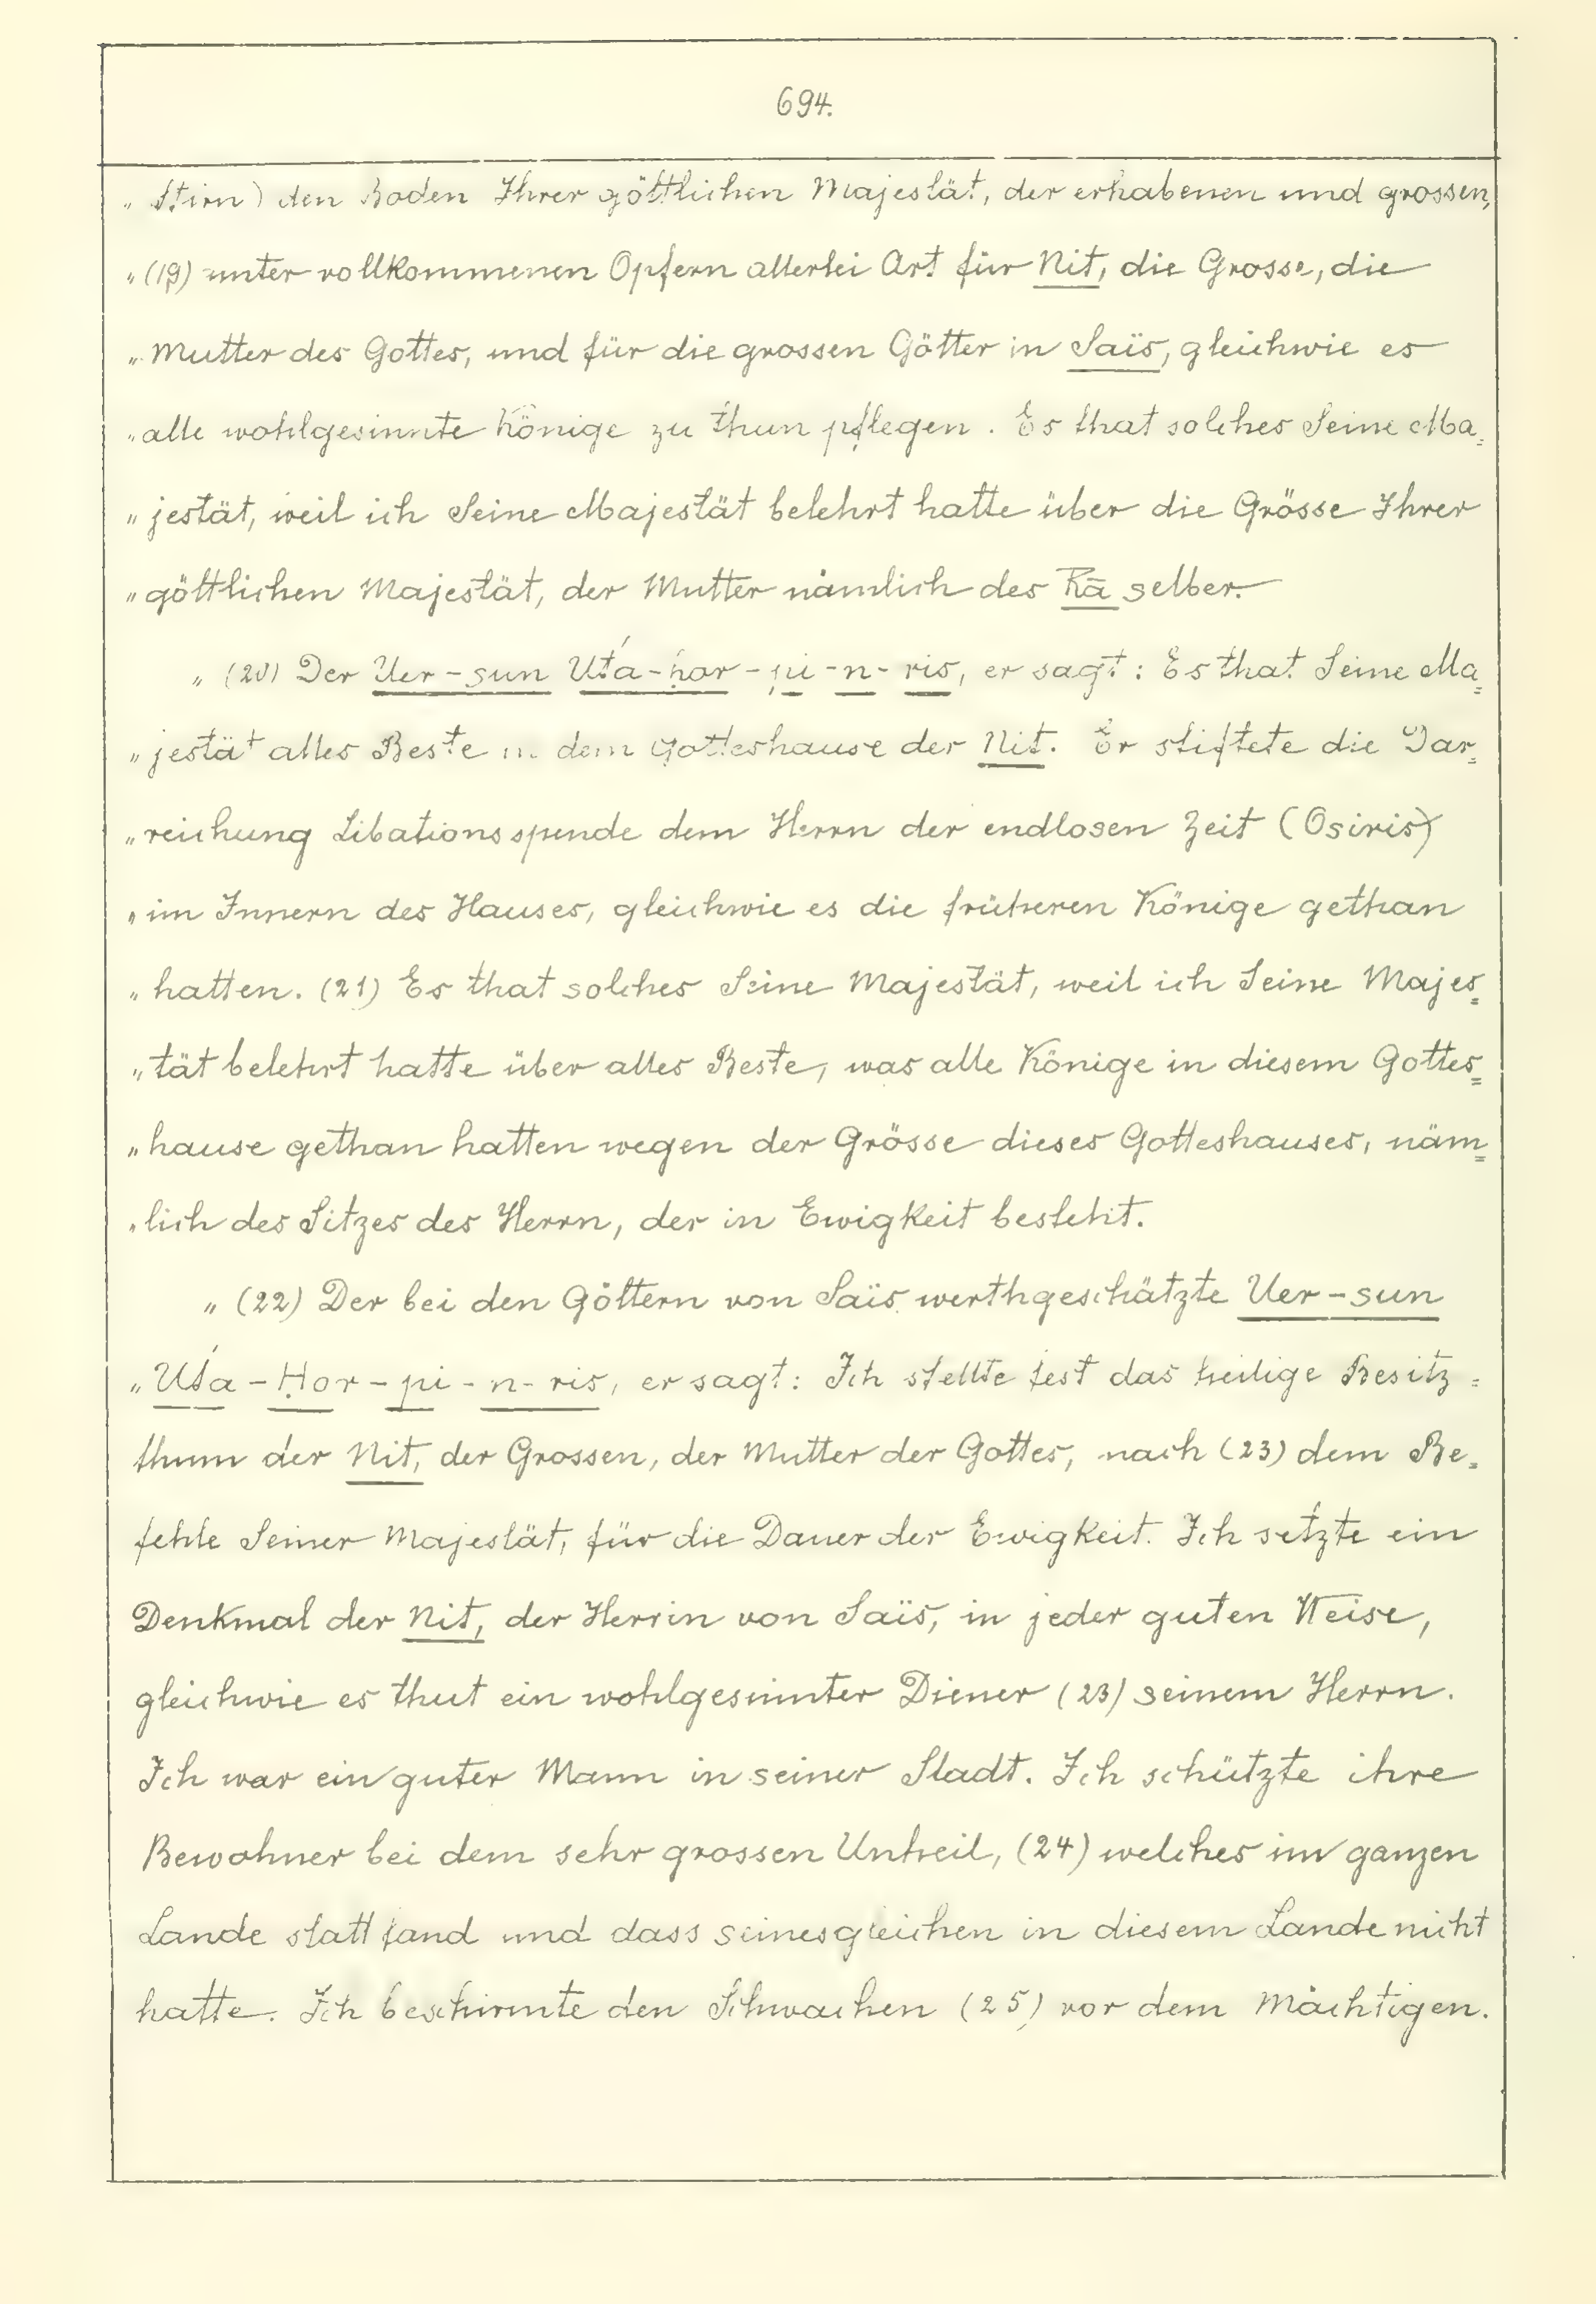 694.
„ Stirn) den Boden Ihrer göttlichen Majestät, der erhabenen und grossen,
„ (19) unter vollkommenen Opfern allerlei Art für Nit, die Grosse, die
„ Mutter des Gottes, und für die grossen Götter in Saïs, gleichwie es
„ alle wohlgesinnte Könige zu thun pflegen. Es that solches Seine Ma=
„ jestät, weil ich Seine Majestät belehrt hatte über die Grösse Ihrer
„ göttlichen Majestät, der Mutter nämlich des Rā selber.
„ (20) Der Uer-sun Uťa-ḥor-pi-n-ris, er sagt: Es that Seine Ma=
„ jestät alles Beste in dem Gotteshause der Nit. Er stiftete die Dar=
„ reichung Libationsspende dem Herrn der endlosen Zeit (Osiris)
„ im Innern des Hauses, gleichwie es die früheren Könige gethan
„ hatten. (21) Es that solches Seine Majestät, weil ich Seine Majes=
„ tät belehrt hatte über alles Beste, was alle Könige in diesem Gottes=
„ hause gethan hatten wegen der Grösse dieses Gotteshauses, näm=
„ lich des Sitzes des Herrn, der in Ewigkeit besteht.
„ (22) Der bei den Göttern von Saïs werthgeschätzte Uer-sun
„ Uťa-Ḥor-pi-n-ris, er sagt: Ich stellte fest das heilige Besitz=
thum der Nit, der Grossen, der Mutter der Gottes, nach (23) dem Be=
fehle Seiner Majestät, für die Dauer der Ewigkeit. Ich setzte ein
Denkmal der Nit, der Herrin von Saïs, in jeder guten Weise,
gleichwie es thut ein wohlgesinnter Diener (23) seinem Herrn.
Ich war ein guter Mann in seiner Stadt. Ich schützte ihre
Bewohner bei dem sehr grossen Unheil, (24) welches im ganzen
Lande statt fand und dass seinesgleichen in diesem Lande nicht
hatte. Ich beschirmte den Schwachen (25) vor dem Mächtigen.